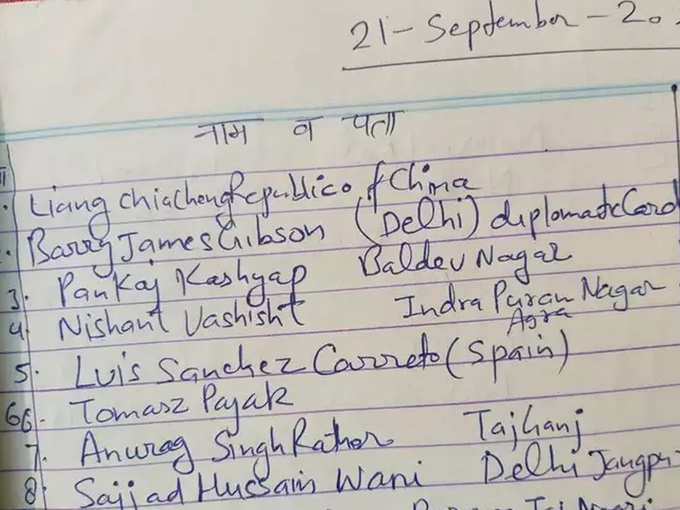 21-September-20
नाम व पता
Liang Chiacheng Republic of China
Barry James Gibson (Delhi) diplomatic Card
3. Pankaj Kashyap Baldev Nagar
4 Nishant Vashisht Indra Puram Nagar
Agra
5. Luis Sanchez Carreto (Spain)
66. Tomasz Pajak
7. Anurag Singh Rathor Tajganj
8. Sajjad Hussain Wani Delhi Jangpu